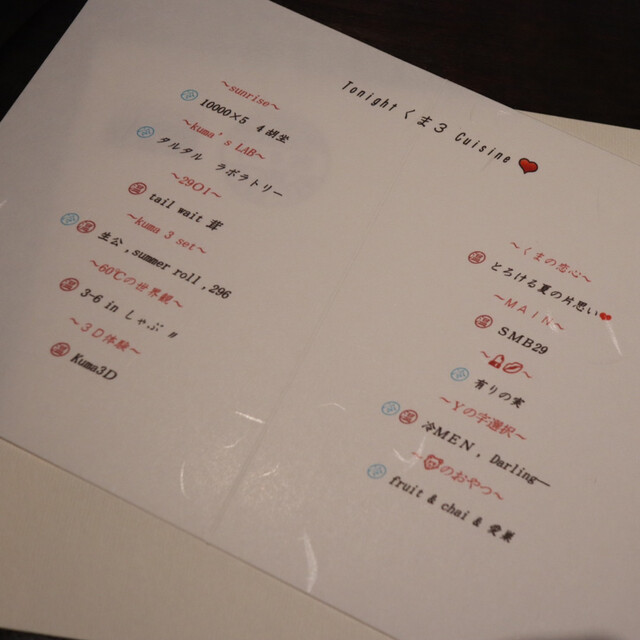 Tonight くま3 Cuisine ❤
～sunrise～
冷 10000×5 4胡坐
～kuma's LAB～
冷 タルタル ラボラトリー
～29OI～
温 tail wait 茸
～kuma 3 set～
冷 温 生公,summer roll,296
～60℃の世界観～
温 3-6 in しゃぶ〃
～3D体験～
温 Kuma3D
～くまの恋心～
温 とろける夏の片思い❤
～MAIN～
温 SMB29
冷 有りの実
～Yの字選択～
冷 温 冷MEN, Darling―
～🐻のおやつ～
冷 fruit & chai & 愛巣